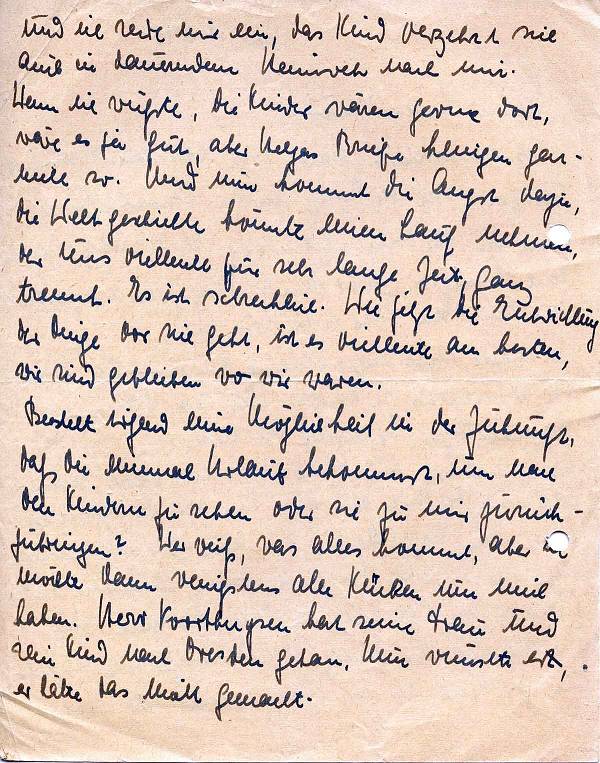 Und sie rede mir ein, das Kind verzehrt sich
auch in dauerndem Heimweh nach mir.
Wenn sie wüsste, die Kinder wären gerne dort,
wäre es ja gut, aber Helgas Briefe klingen gar
nicht so. Und nun kommt die Angst dazu,
die Weltgeschichte könnte einen Gang nehmen,
der uns vielleicht für sehr lange Zeit ganz
trennt. Es ist schrecklich. Wie jetzt die Entwicklung
der Dinge vor sich geht, ist es vielleicht am besten,
wir sind geblieben wo wir waren.
Besteht irgend eine Möglichkeit in der Zukunft,
daß du einmal Urlaub bekommst, um nach
den Kindern zu sehen oder sie zu mir zurück-
zubringen? Wer weiß, was alles kommt, aber ich
möchte dann wenigstens alle Küken um mich
haben. Herr Voorthuysen hat seine Frau und
sein Kind nach Dresden getan, nun wünscht er,
er hätte das nicht gemacht.